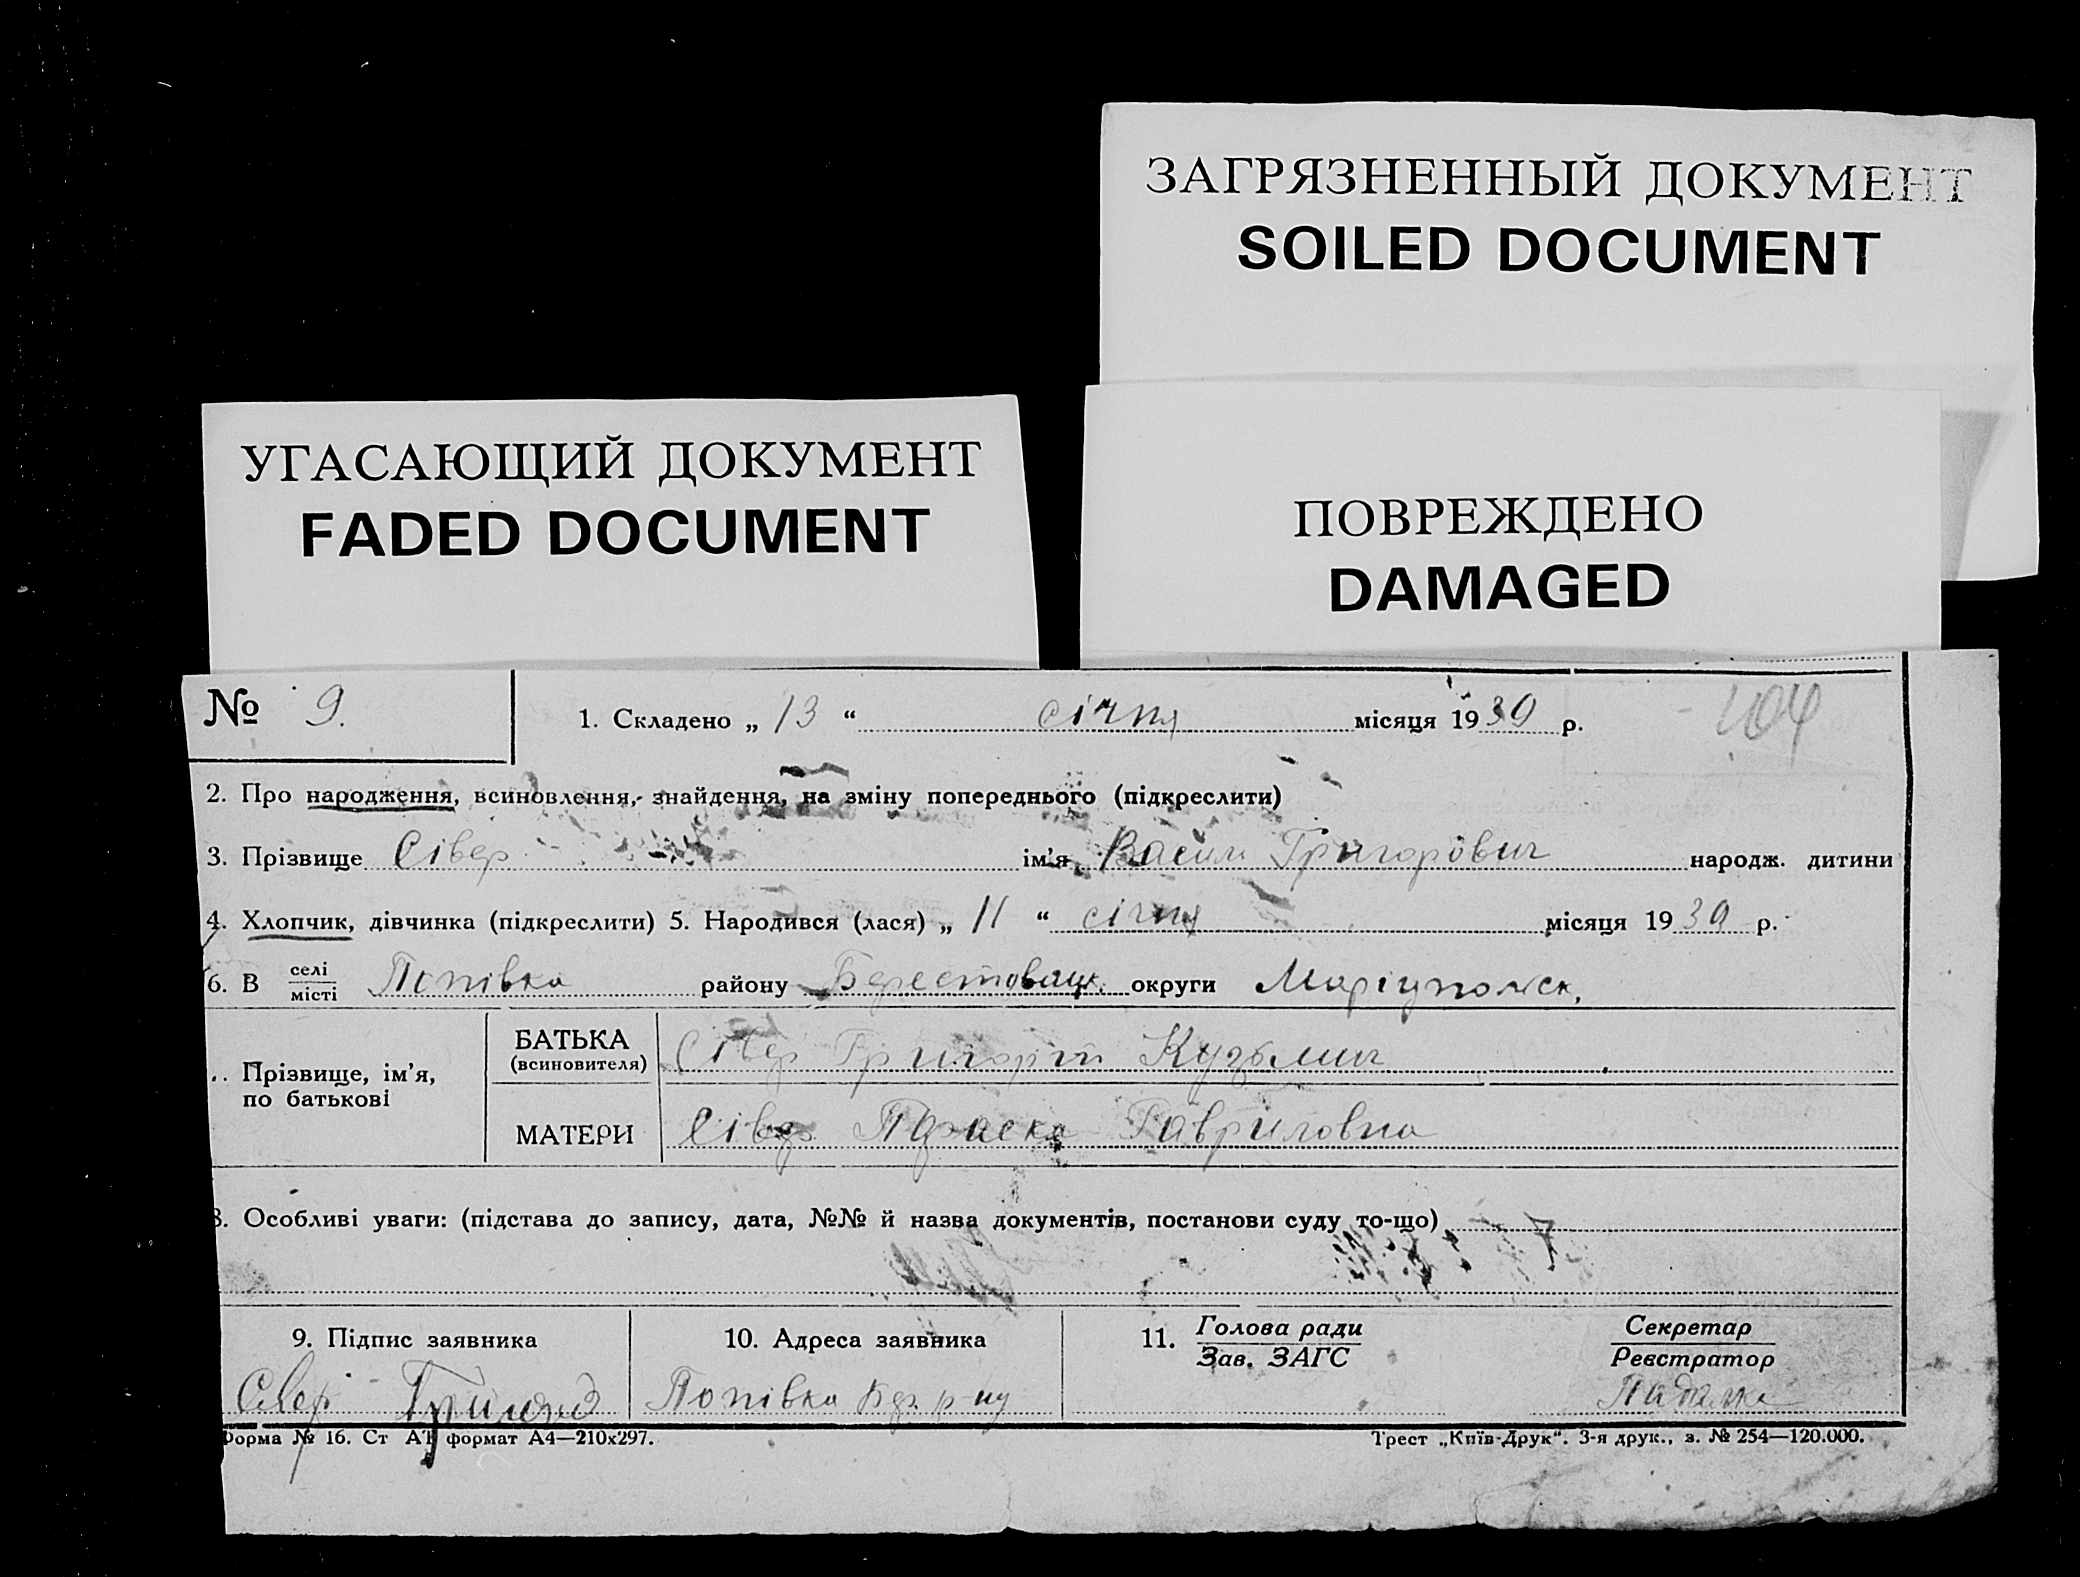 ЗАГРЯЗНЕННЫЙ ДОКУМЕНТ
SOILED DOCUMENT
УГАСАЮЩИЙ ДОКУМЕНТ
FADED DOCUMENT
ПОВРЕЖДЕНО
DAMAGED
№ 9. 1. Складено „ 13 “ січня місяця 1939 р. 104
2. Про народження, всиновлення, знайдення, на зміну попереднього (підкреслити)
3. Прізвище Сівер ім’я Васили Григорович народж. дитини
4. Хлопчик, дівчинка (підкреслити) 5. Народився (лася) „ 11 “ січня місяця 1939 р.
6. В селі/місті Попівка району Берестовацк. округи Маріупольск.
Прізвище, ім’я, по батькові
БАТЬКА (всиновителя) Сівер Григорій Кузьмич
МАТЕРИ Сівер Параска Гавриловна
8. Особливі уваги: (підстава до запису, дата, №№ й назва документів, постанови суду то-що)
9. Підпис заявника 10. Адреса заявника 11. Голова ради/Зав. ЗАГС Секретар/Реєстратор
Сівер Попівка Бер. р-ну
Форма № 16. Ст АТ формат А4—210x297. Трест „Київ-Друк“. 3-я друк., з. № 254—120.000.